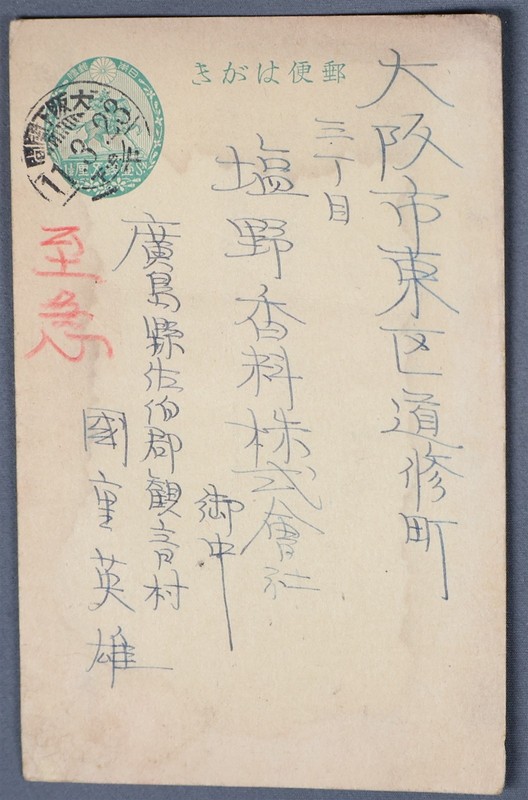 郵便はがき
大阪市東区道修町
三丁目
塩野香料株式會社
御中
廣島縣佐伯郡観音村
國重英雄
至急